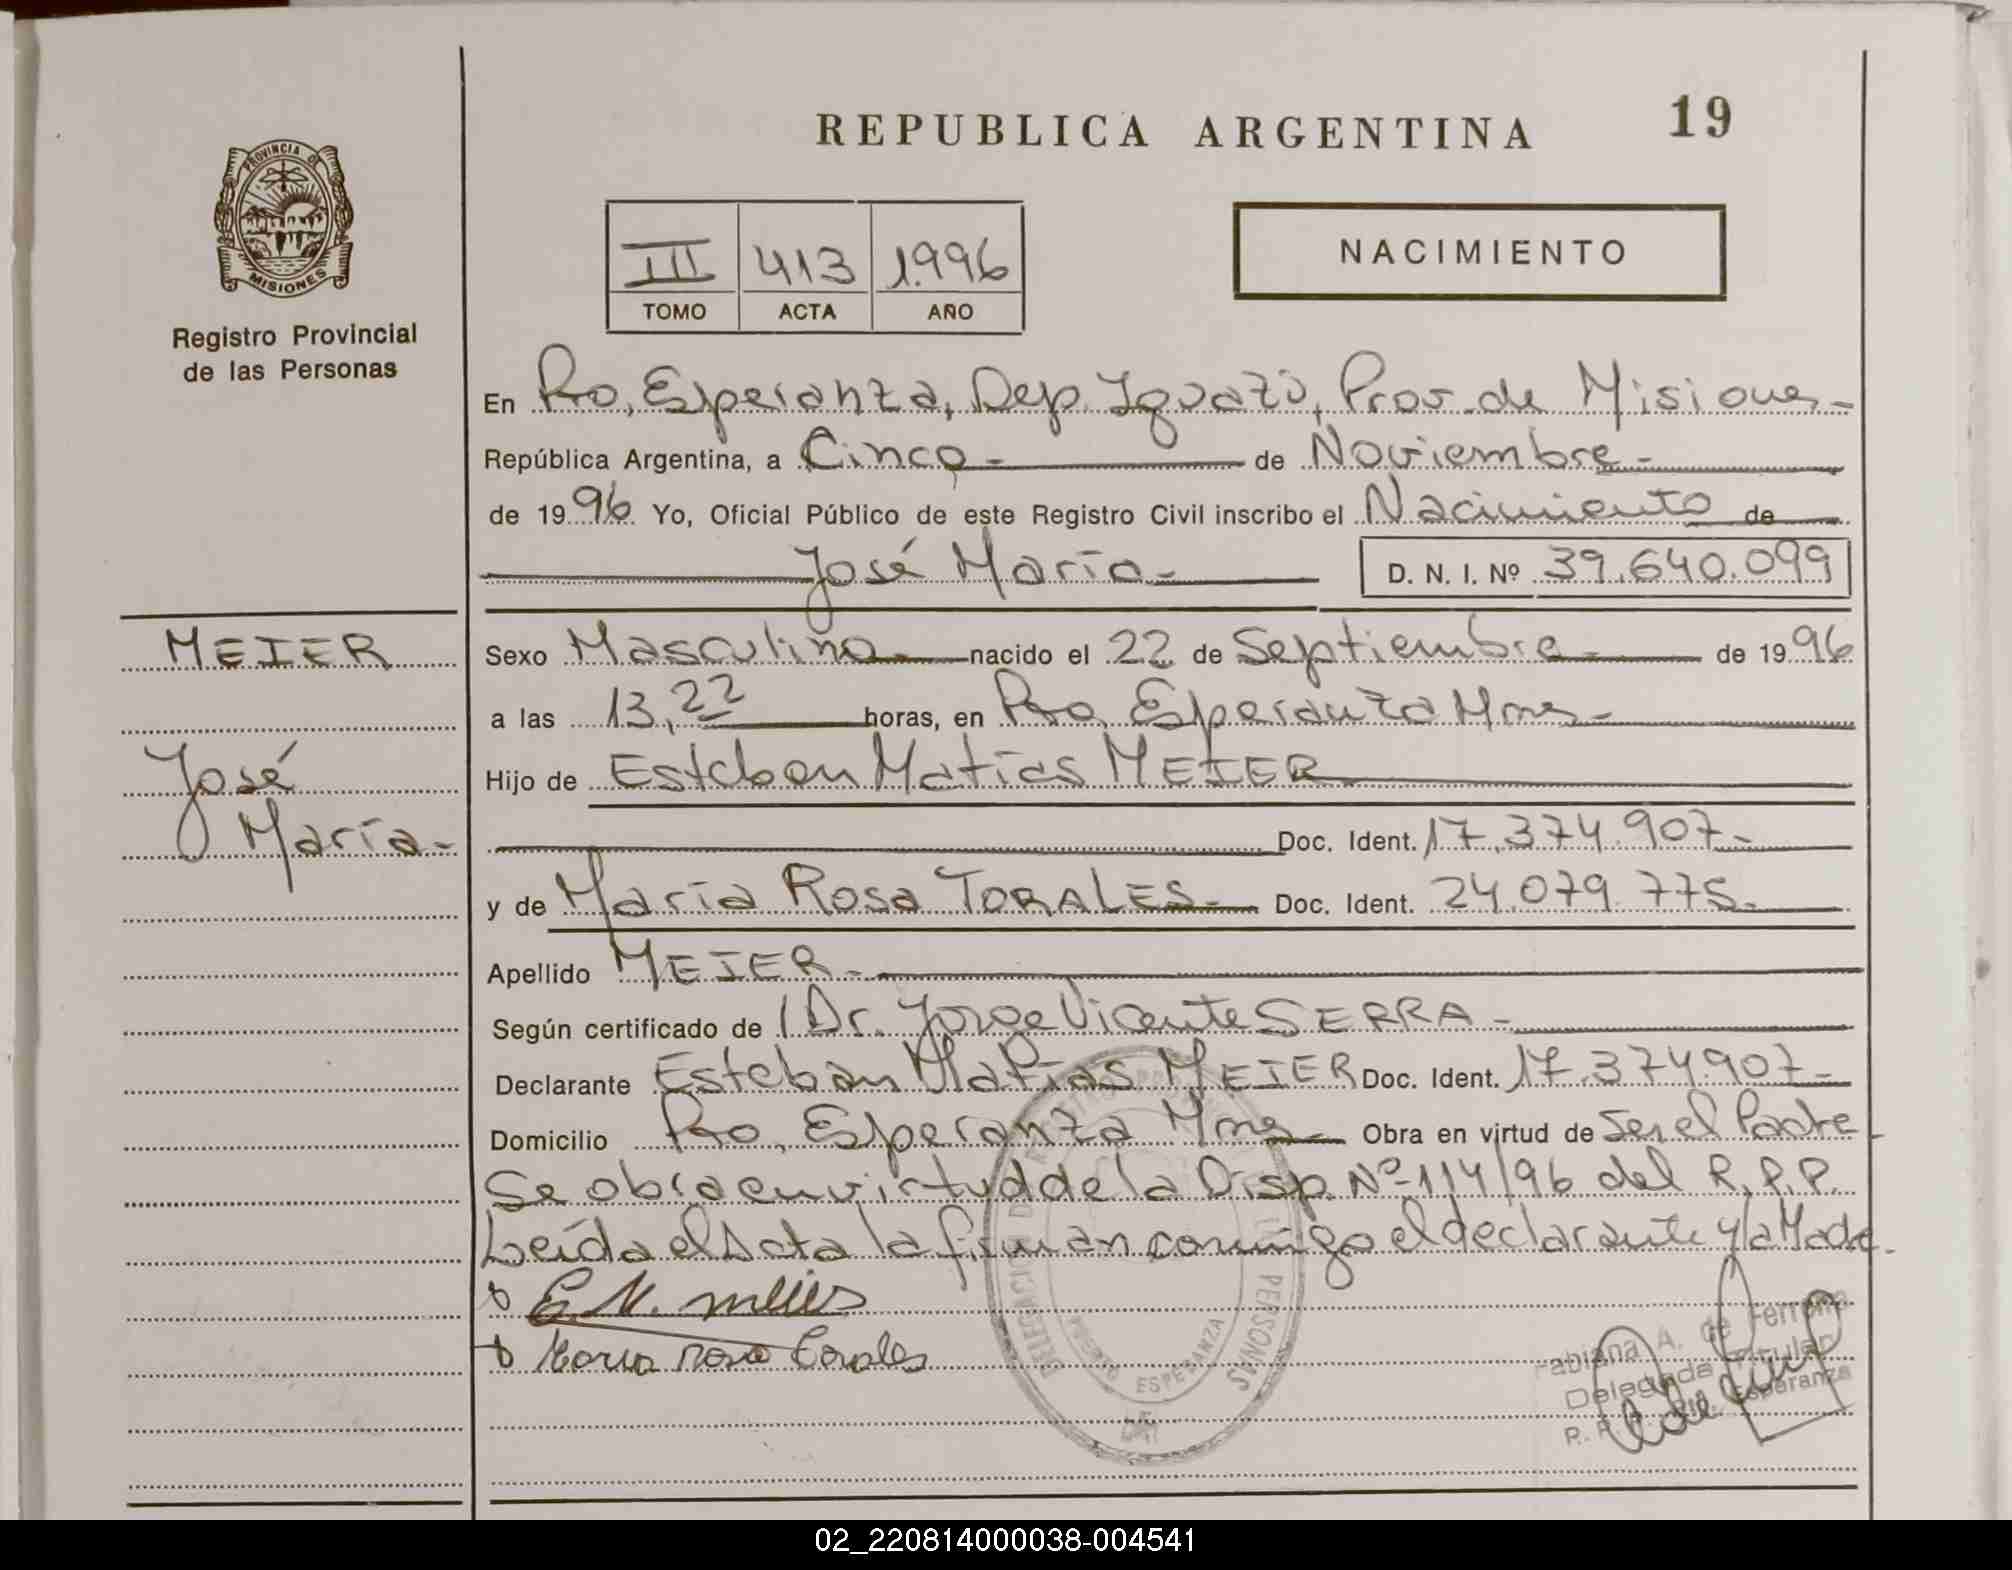 REPUBLICA ARGENTINA
19
PROVINCIA DE
MISIONES
Registro Provincial
de las Personas
III 413 1.996
TOMO ACTA AÑO
NACIMIENTO
En Pto, Esperanza, Dep. Iguazú, Prov. de Misiones-
República Argentina, a Cinco- de Noviembre-
de 1996 Yo, Oficial Público de este Registro Civil inscribo el Nacimiento de
José María- D. N. I. Nº 39.640.099
MEIER
José
María-
Sexo Masculino- nacido el 22 de Septiembre- de 1996
a las 13,22 horas, en Pto, Esperanza Mnes-
Hijo de Esteban Matías MEIER
Doc. Ident. 17.374.907-
y de María Rosa TORALES- Doc. Ident. 24.079.775-
Apellido MEIER-
Según certificado de Dr. Jorge Vicente SERRA-
Declarante Esteban Matías MEIER Doc. Ident. 17.374907-
Domicilio Pto, Esperanza Mnes- Obra en virtud de Ser el Padre
Se obra en virtud de la Disp. Nº 114/96 del R.P.P.
Leída el Acta la firman conmigo el declarante y la Madre.
E. M. meier
Maria rosa Torales
DELEGACION PERSONAS
ESPERANZA
Fabiana A. de Ferreira
Delegada Titular
Esperanza
02_220814000038-004541